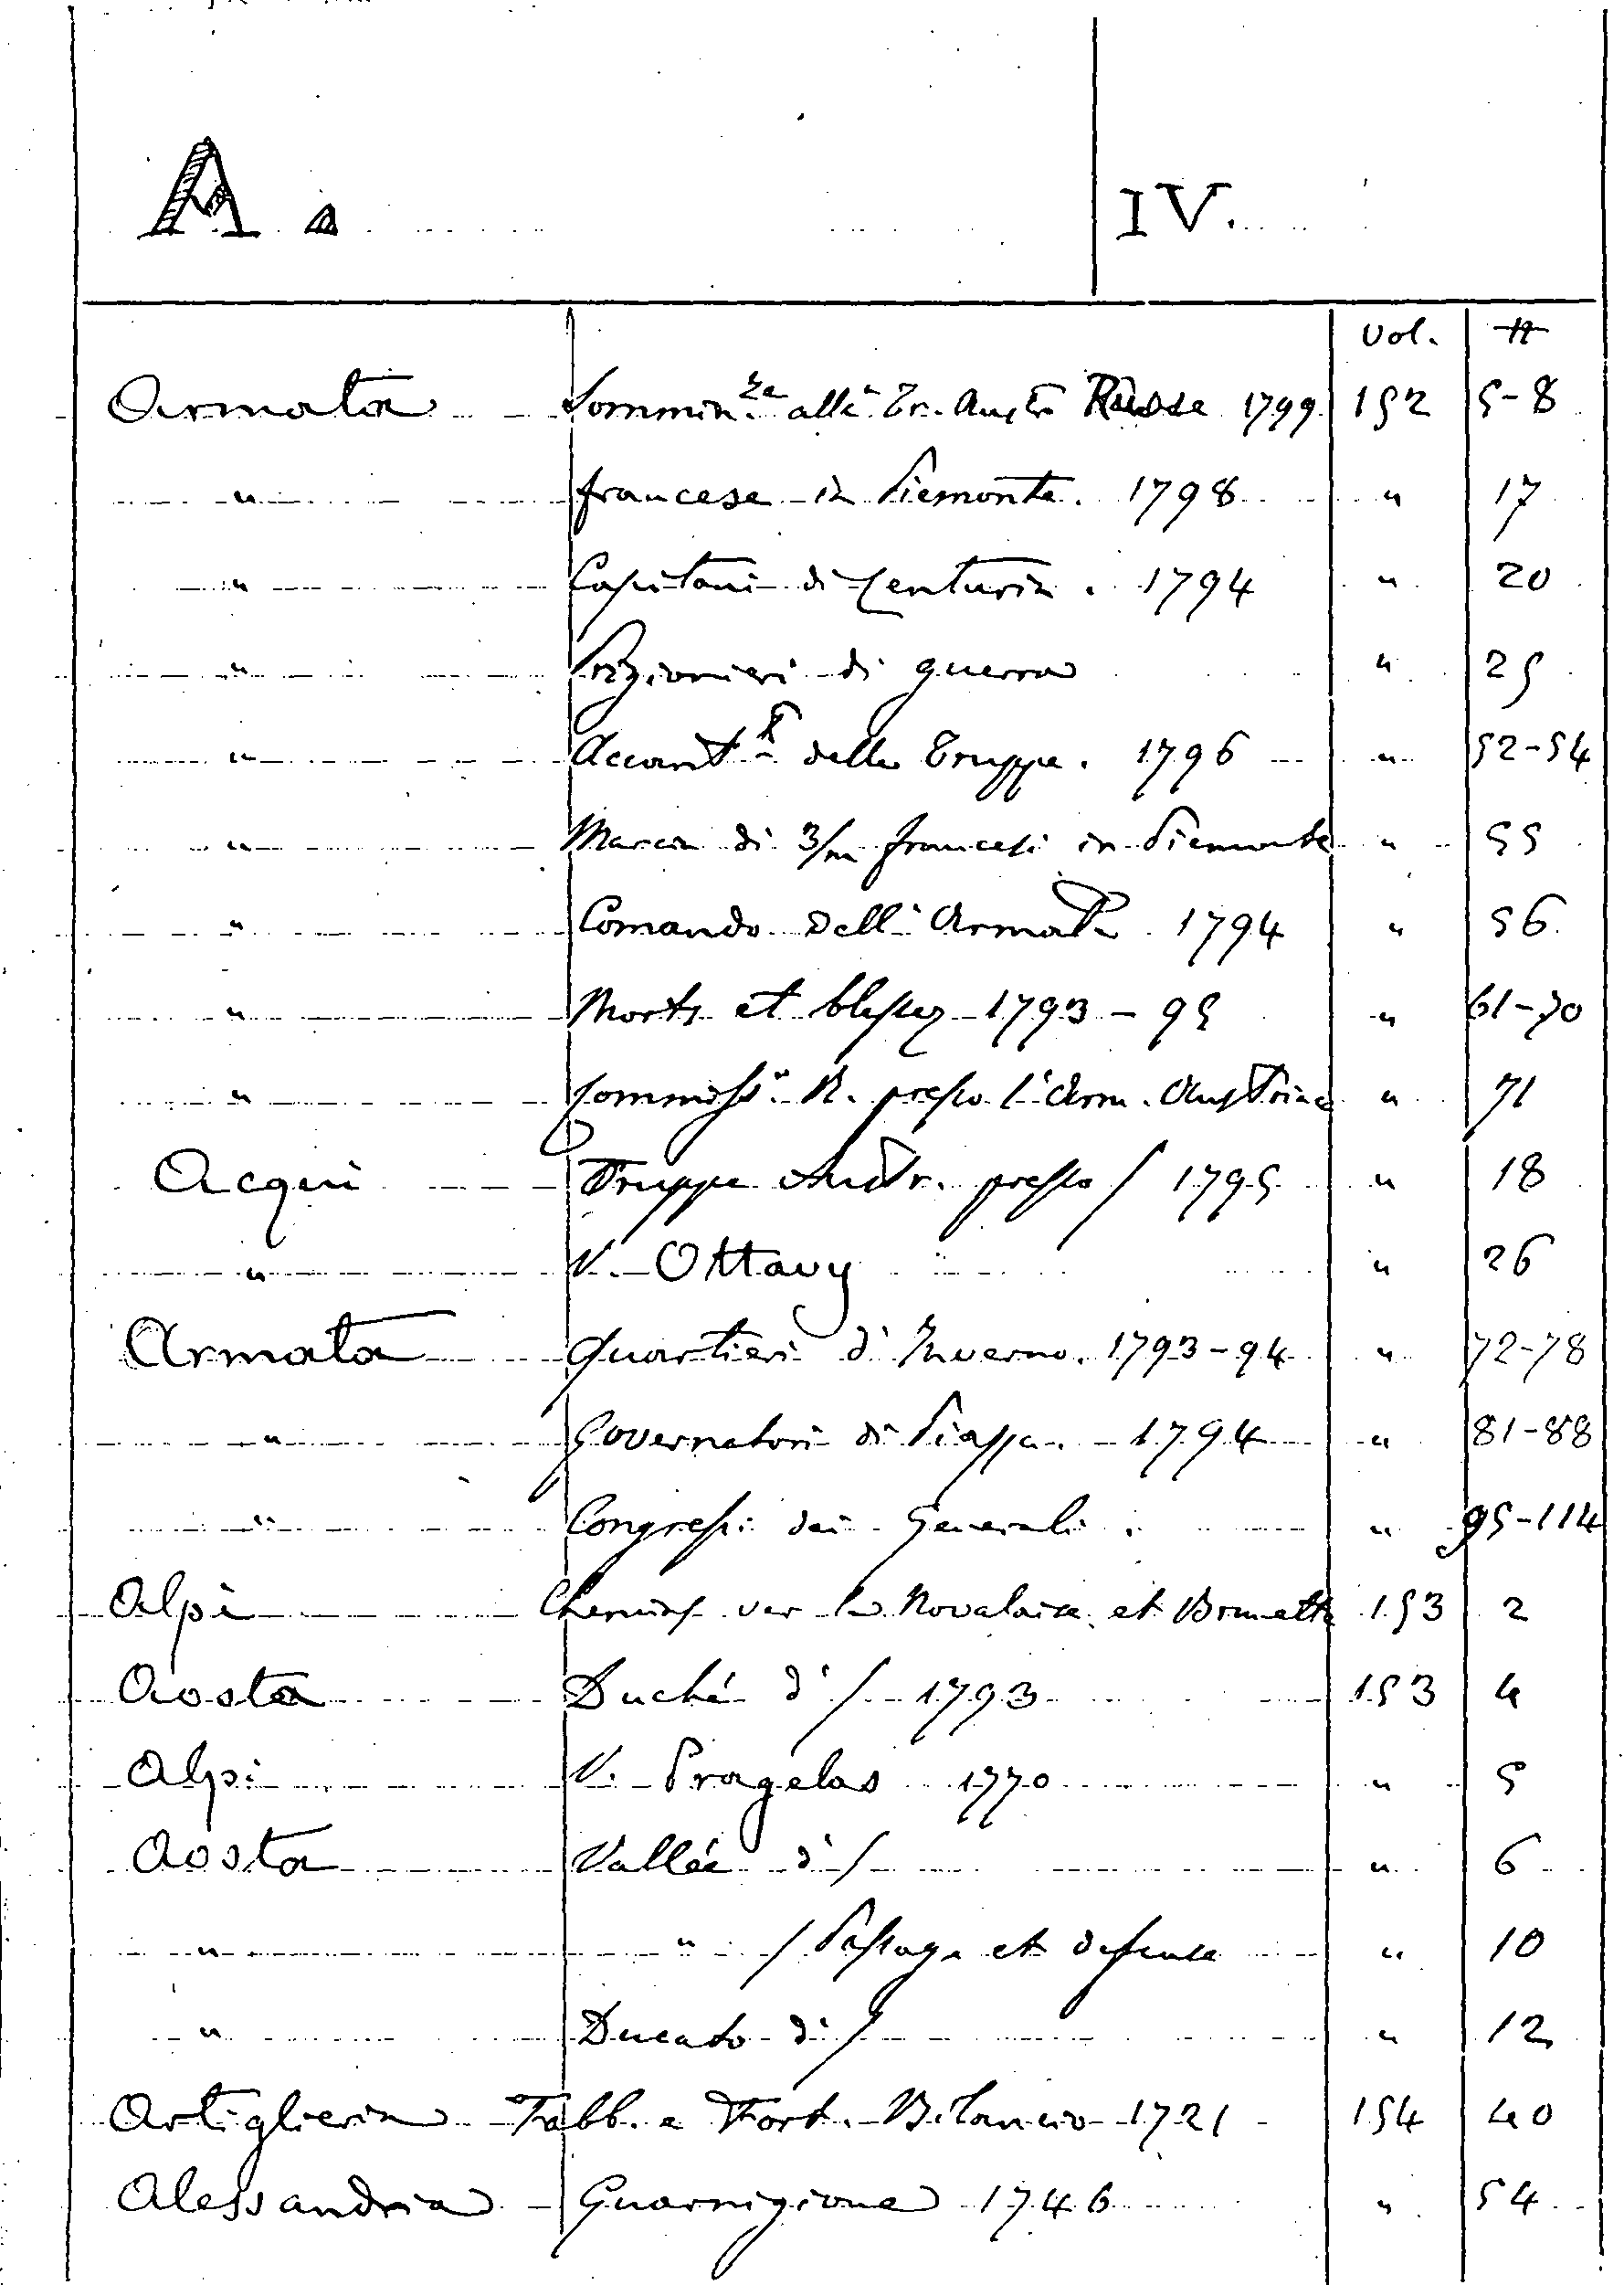 A. a IV.
Vol. #
Armata Sommin.ze alle Tr. Austr. Russe 1799 152 5-8
" francese in Piemonte. 1798 " 17
" Capitani di Centuria. 1794 " 20
" Prigionieri di guerra " 25
" Accant.ti delle Truppe. 1796 " 52-54
" Marcia di 3/m francesi in Piemonte " 55
" Comando dell'Armata 1794 " 56
" Morts et blessez 1793-95 " 61-70
" Commiss.o R. presso l'Arm. Austriaca " 71
Acqui Truppe Austr. presso / 1795 " 18
" V. Ottavy " 26
Armata Quartieri d'Inverno. 1793-94 " 72-78
" Governatori di Piazza. 1794 " 81-88
" Congressi dei Generali. " 95-114
Alpi Chemins ver la Novalaise et Brunette 153 2
Aosta Duché d'/ 1793 153 4
Alpi V. Pragelas 1770 " 5
Aosta Vallée d'/ " 6
" " / Passage et defense " 10
" Ducato di / " 12
Artiglieria Fabb. e Fort. Bilancio 1721 154 40
Alessandria Guarnigione 1746 " 54